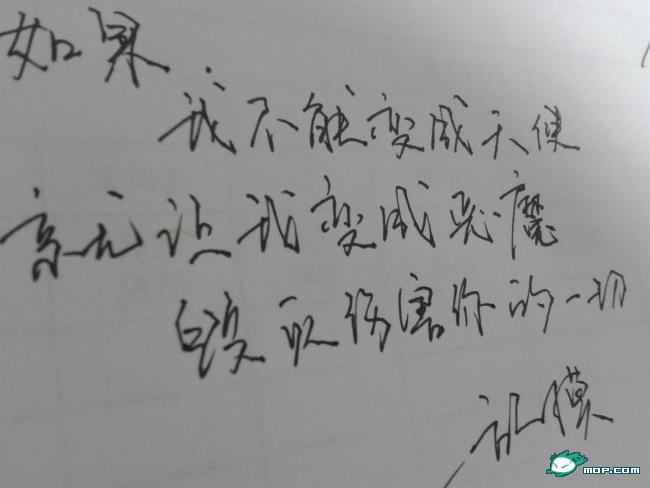 如果..
我不能变成天使
就让我变成恶魔
毁灭伤害你的一切
mop.com